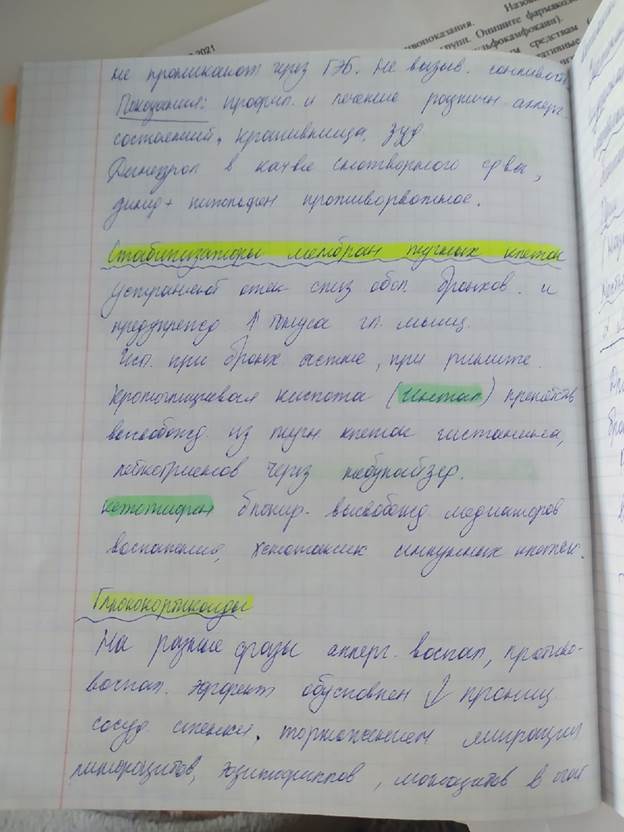 2021
Назов
ивопоказания.
групп. Опишите фармаколог
льфокамфокаин).
м средствам
ративные
не проникают через ГЭБ. Не вызыв. сонливость
Показания: профил. и лечение различн. аллерг.
состояний, крапивница, зуд
Димедрол в кач-ве снотворного ср-ва,
димед + пипольфен противорвотное.
Стабилизаторы мембран тучных клеток
Устраняют отек слиз обол бронхов. и
предупрежд ↑ тонуса гл. мышц.
Исп. при бронх. астме, при рините.
Кромоглициевая кислота (Интал) препятств
высвобожд. из тучн клеток гистамина,
лейкотриенов через небулайзер.
Кетотифен блокир. высвобожд. медиаторов
воспаления, хемотаксис иммунных клеток.
Глюкокортикоиды
На разные фазы аллерг. воспал, противо-
воспал. эффект обусловлен ↓ прониц
сосуд стенки, торможением миграции
лимфоцитов, эозинофилов, моноцитов в очаг